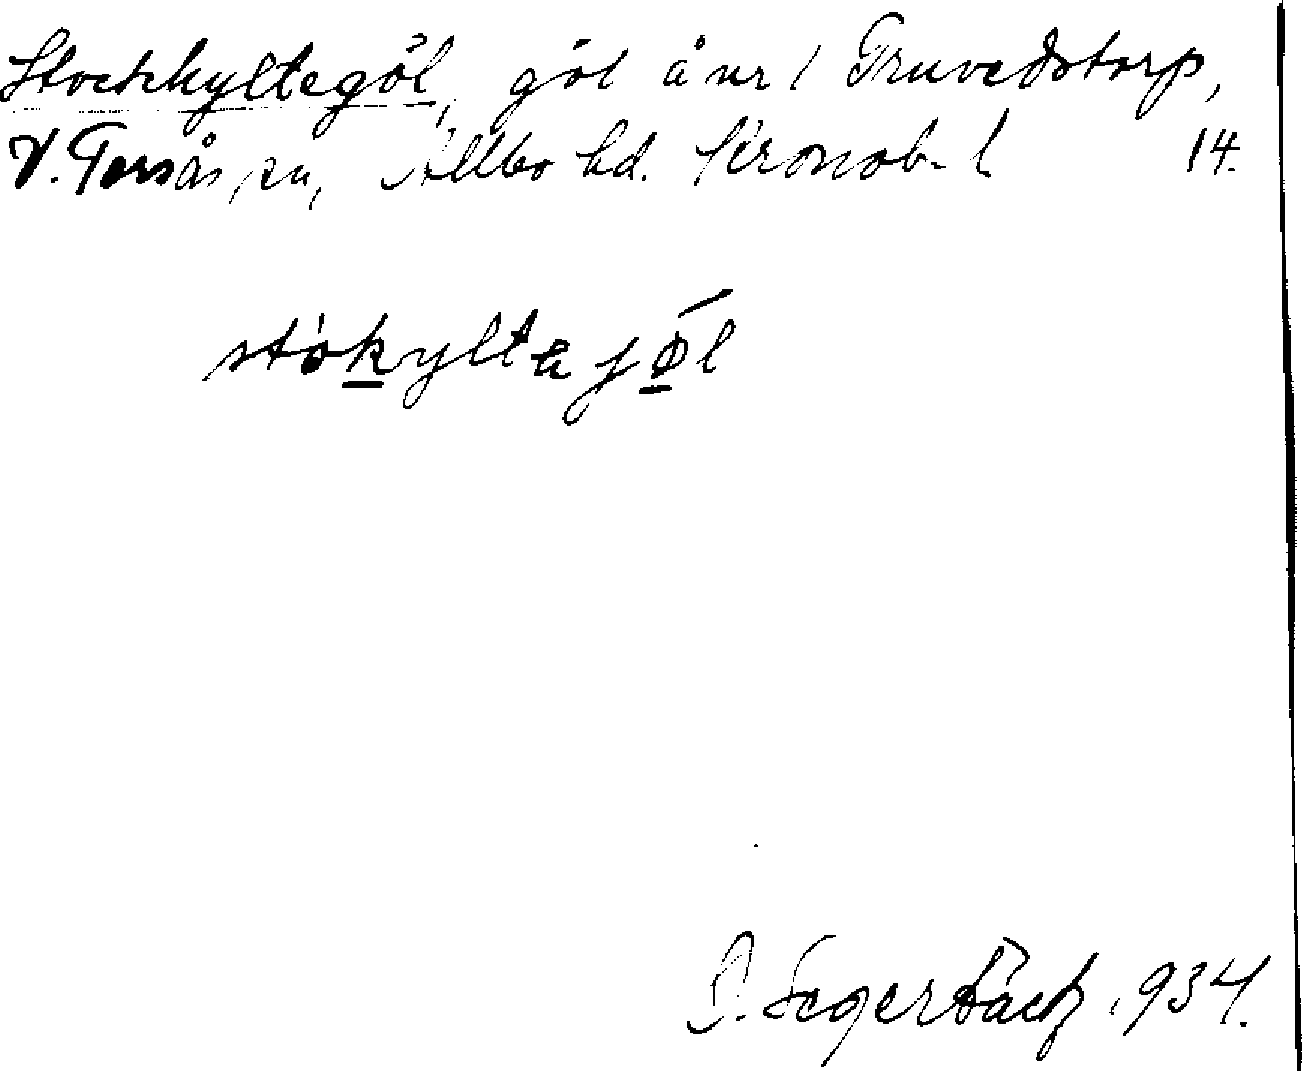 Stockkyltegöl, göl å nr 1 Gruvedstorp,
V. Torsås sn, Allbo hd. Kronob. l 14.
stòkyltajǿl
P. Segerbäck. 934.